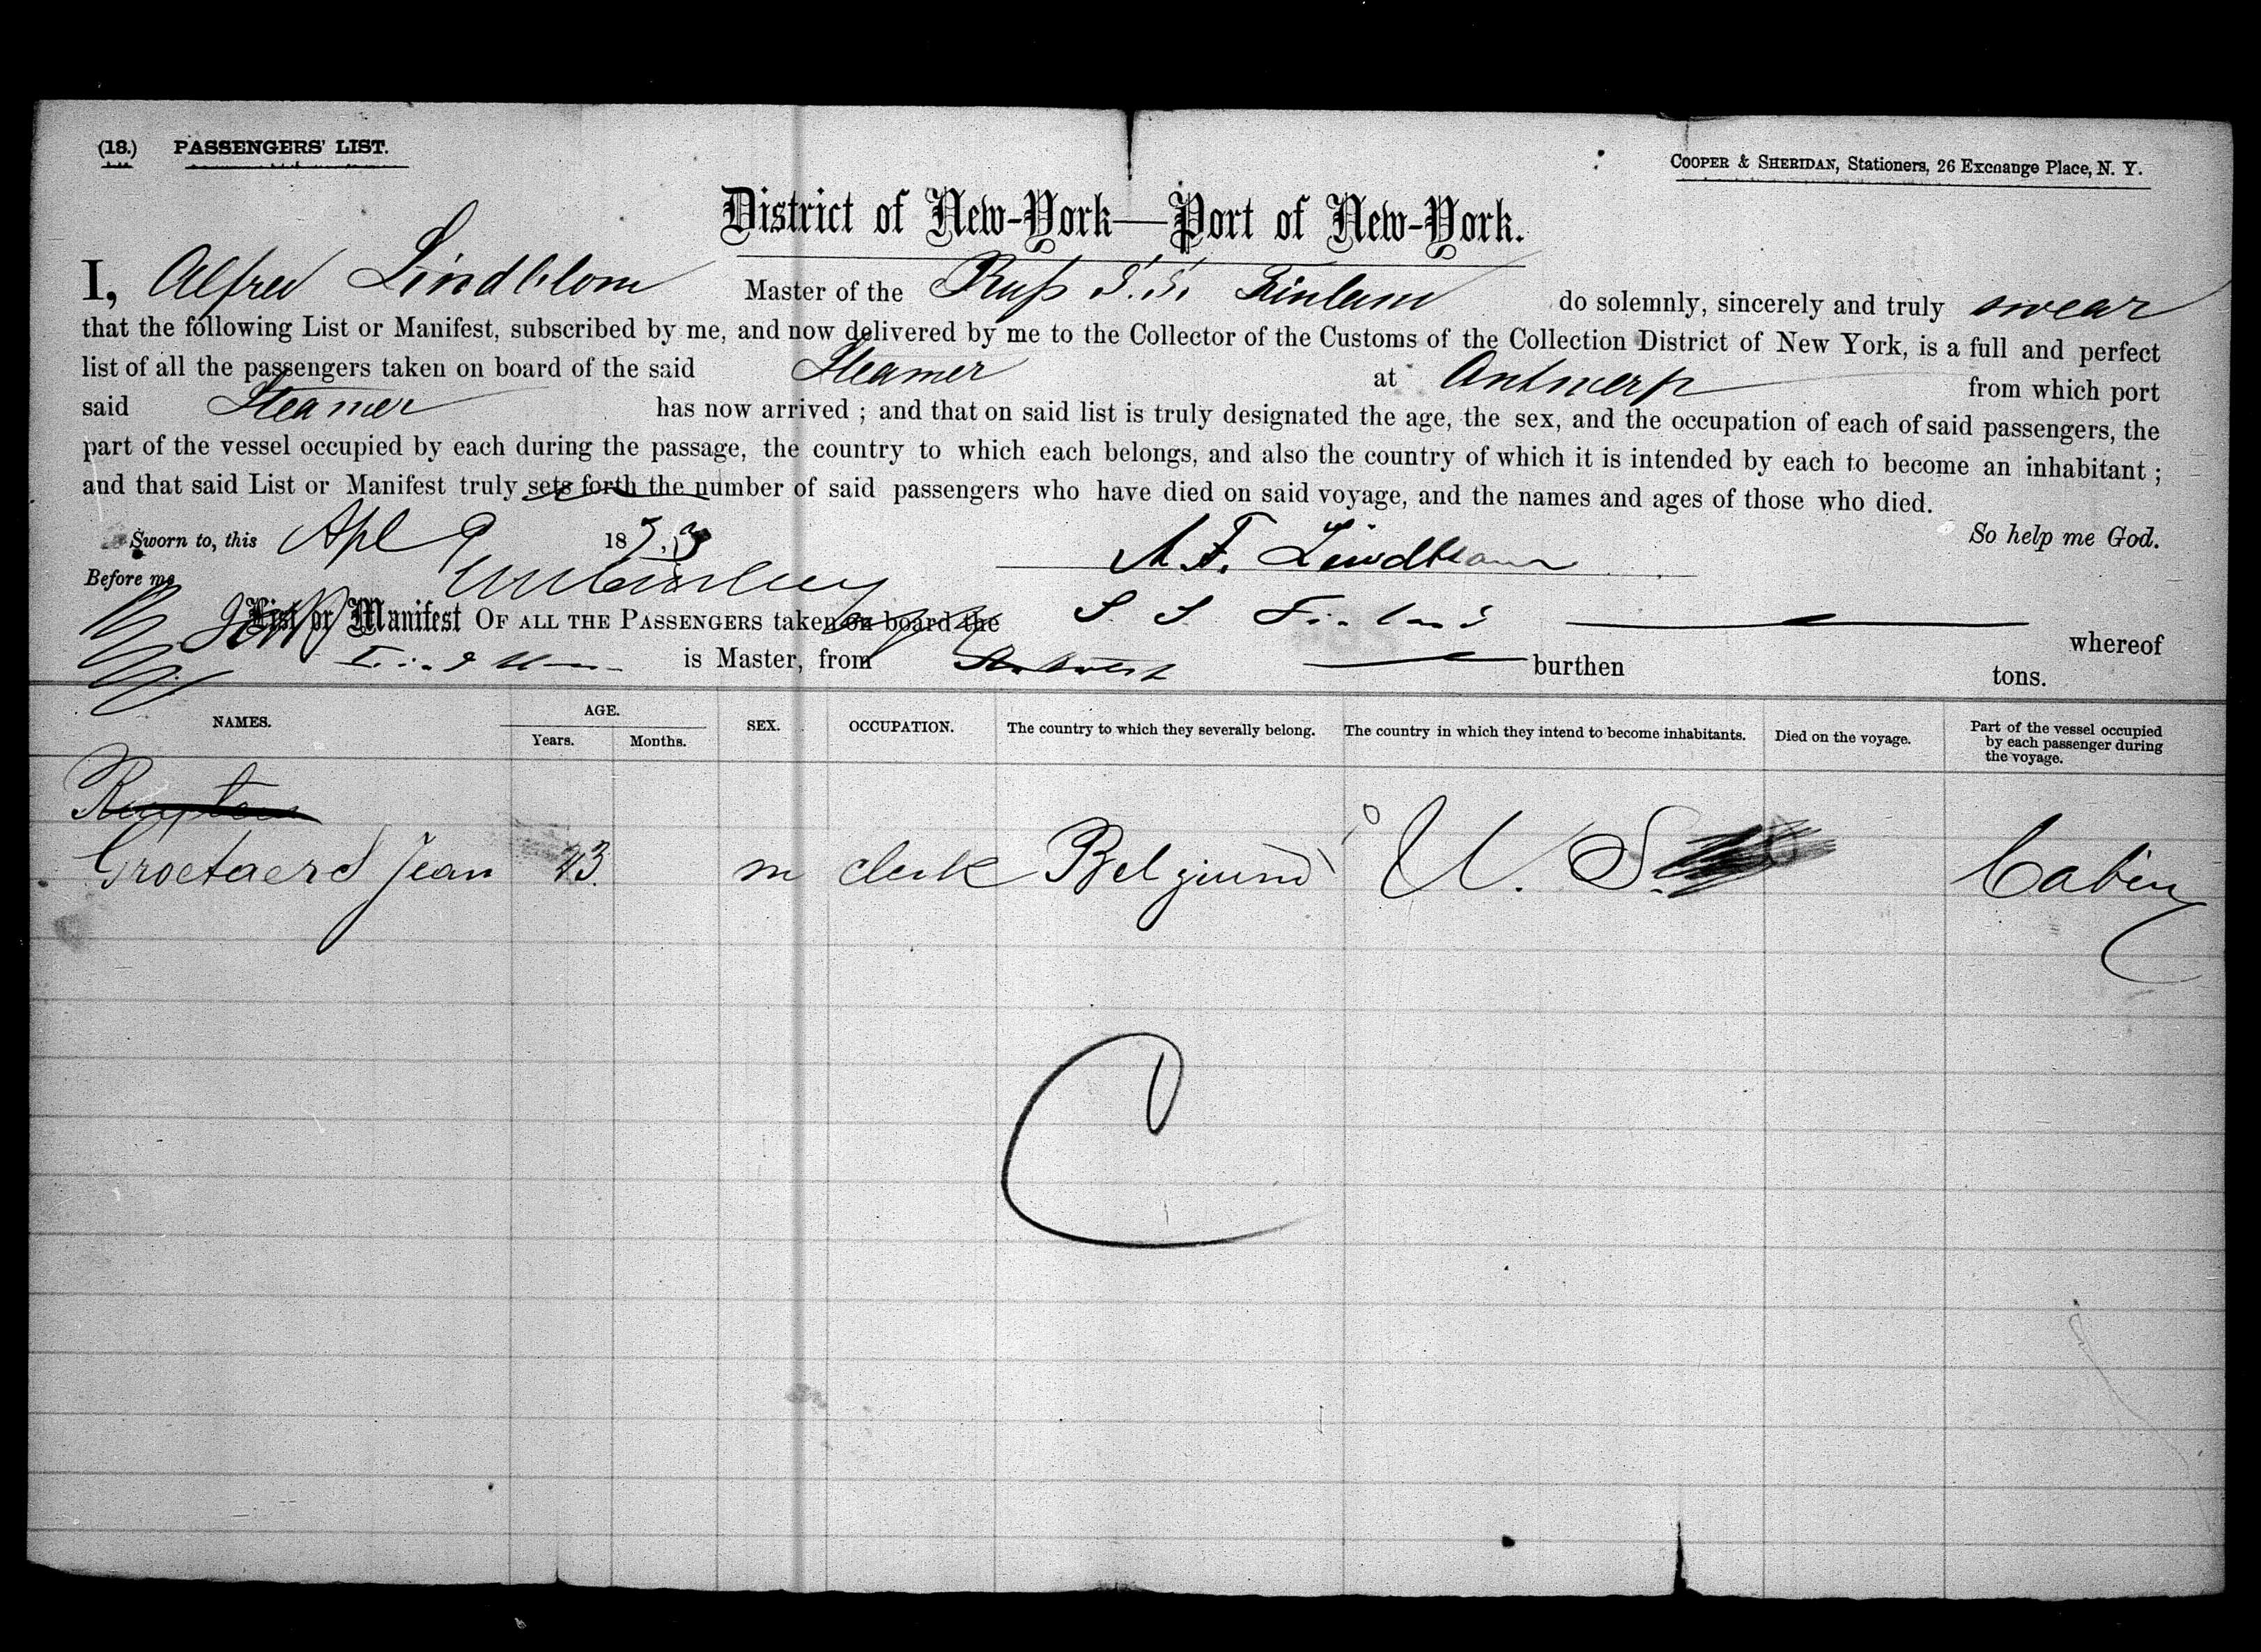 (18.) PASSENGERS' LIST.
COOPER & SHERIDAN, Stationers, 26 Exchange Place, N. Y.
District of New-York—Port of New-York.
I, Alfred Lindblom Master of the Russ S.S. Finland do solemnly, sincerely and truly swear
that the following List or Manifest, subscribed by me, and now delivered by me to the Collector of the Customs of the Collection District of New York, is a full and perfect
list of all the passengers taken on board of the said Steamer at Antwerp from which port
said Steamer has now arrived ; and that on said list is truly designated the age, the sex, and the occupation of each of said passengers, the
part of the vessel occupied by each during the passage, the country to which each belongs, and also the country of which it is intended by each to become an inhabitant ;
and that said List or Manifest truly sets forth the number of said passengers who have died on said voyage, and the names and ages of those who died.
Sworn to, this Apl 9 1883 So help me God.
A. F. Lindblom
Before me
List or Manifest OF ALL THE PASSENGERS taken on board the S. S. Finland whereof
Lindblom is Master, from Antwerp burthen tons.
NAMES. AGE. Years. Months. SEX. OCCUPATION. The country to which they severally belong. The country in which they intend to become inhabitants. Died on the voyage. Part of the vessel occupied by each passenger during the voyage.
Groetaerd Jean 23. m clerk Belgium U. S. Cabin
C